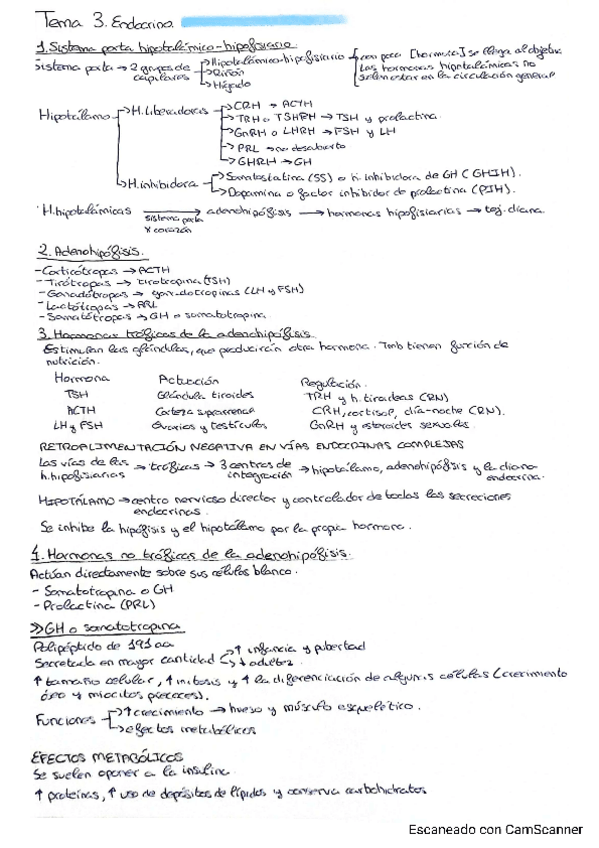 Tema 3. Endocrino.
1. Sistema porta hipotalámico-hipofisiario
Sistema porta → 2 grupos de capilares → Hipotalámico-hipofisiario → con poca [hormona] se llega al objetivo
→ Riñón
→ Hígado
Las hormonas hipotalámicas no suelen estar en la circulación general
Hipotálamo → H. liberadoras → CRH → ACTH
→ TRH o TSHRH → TSH y prolactina.
→ GnRH o LHRH → FSH y LH
→ PRL → no descubierto
→ GHRH → GH
→ H. inhibidora → Somatostatina (SS) o h. inhibidora de GH (GHIH).
→ Dopamina o factor inhibidor de prolactina (PIH).
H. hipotalámicas → adenohipófisis → hormonas hipofisiarias → tej. diana
sistema porta
x corazón
2. Adenohipófisis.
- Corticótropas → ACTH
- Tirótropas → tirotropina (TSH)
- Gonadótropas → gonadotropinas (LH y FSH)
- Lactótropas → PRL
- Somatótropas → GH o somatotropina
3. Hormonas tróficas de la adenohipófisis.
Estimulan las glándulas, que producirán otra hormona. Tmb tienen función de
nutrición.
Hormona Actuación Regulación.
TSH Glándula tiroides TRH y h. tiroideas (RN)
ACTH Corteza suprarrenal CRH, cortisol, día-noche (RN).
LH y FSH Ovarios y testículos GnRH y esteroides sexuales.
RETROALIMENTACIÓN NEGATIVA EN VÍAS ENDOCRINAS COMPLEJAS
Las vías de las h. hipofisiarias → tróficas → 3 centros de integración → hipotálamo, adenohipófisis y la diana endocrina.
HIPOTÁLAMO → centro nervioso director y controlador de todas las secreciones
endocrinas.
Se inhibe la hipófisis y el hipotálamo por la propia hormona.
4. Hormonas no tróficas de la adenohipófisis.
Actúan directamente sobre sus células blanco.
- Somatotropina o GH
- Prolactina (PRL)
≫ GH o somatotropina
Polipéptido de 191 aa
Secretada en mayor cantidad → ↑ infancia y pubertad
→ ↓ adultez
↑ tamaño celular, ↑ mitosis y ↑ la diferenciación de algunas células (crecimiento
óseo y miocitos precoces).
Funciones → ↑ crecimiento → hueso y músculo esquelético.
→ efectos metabólicos
EFECTOS METABÓLICOS
Se suelen oponer a la insulina
↑ proteínas, ↑ uso de depósitos de lípidos y conserva carbohidratos
Escaneado con CamScanner